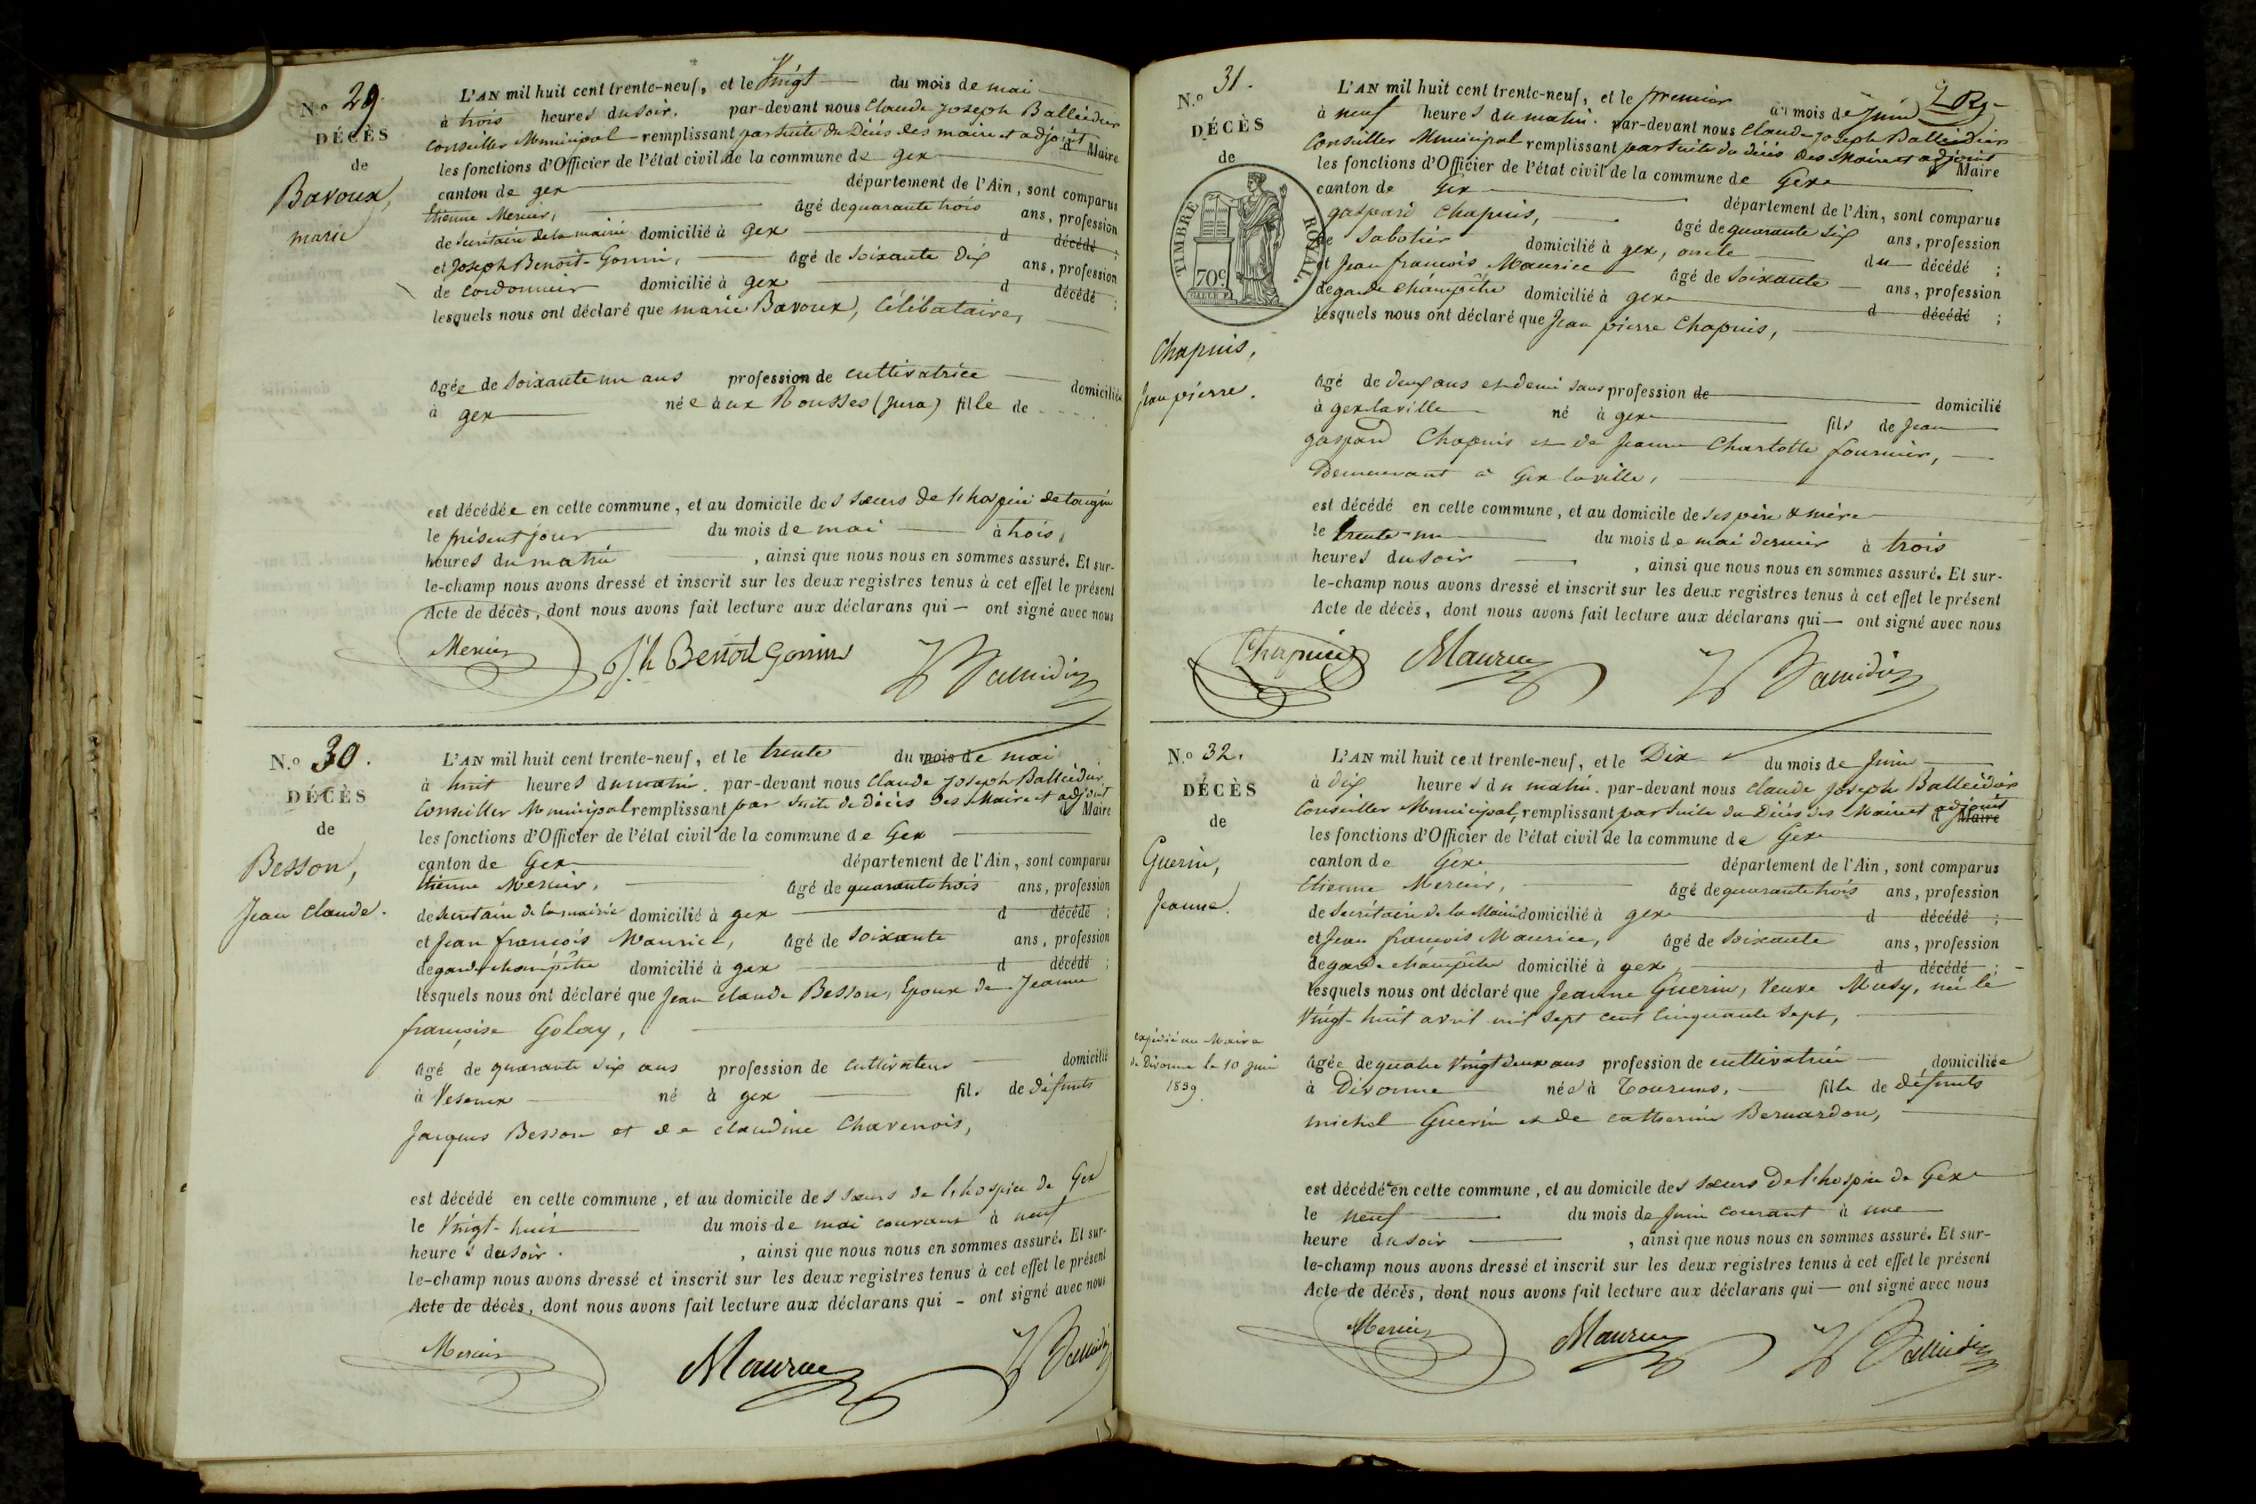 N.o 29.
DÉCÈS
de
Bavoux,
marie
L'AN mil huit cent trente-neuf, et le Vingt du mois de mai
à trois heures du soir, par-devant nous Claude Joseph Balleidier
Conseiller Municipal remplissant par suite du Décès des maire et adjoint d Maire
les fonctions d'Officier de l'état civil de la commune de gex
canton de gex département de l'Ain, sont comparus
Etienne Mercier, âgé de quarante trois ans, profession
de Secrétaire de la mairie domicilié à gex d décédé ;
et Joseph Benoit-Gonin, âgé de soixante Dix ans, profession
de Cordonnier domicilié à gex d décédé ;
lesquels nous ont déclaré que marie Bavoux, Célibataire,
âgée de soixante un ans profession de cultivatrice domiciliée
à gex née aux Rousses (Jura) fille de
est décédée en cette commune, et au domicile des sœurs de l'hospice de tougin
le présent jour du mois de mai à trois
heures du matin , ainsi que nous nous en sommes assuré. Et sur-
le-champ nous avons dressé et inscrit sur les deux registres tenus à cet effet le présent
Acte de décès, dont nous avons fait lecture aux déclarans qui — ont signé avec nous
Mercier Jh Benoit Gonin Balleidier
N.o 30.
DÉCÈS
de
Besson,
Jean Claude.
L'AN mil huit cent trente-neuf, et le trente du mois de mai
à huit heures du matin. par-devant nous Claude Joseph Balleidier
Conseiller Municipal remplissant par suite de décès des Maire et adjoint d Maire
les fonctions d'Officier de l'état civil de la commune de Gex
canton de Gex département de l'Ain, sont comparus
Etienne Mercier, âgé de quarante trois ans, profession
de Secrétaire de la mairie domicilié à gex d décédé ;
et Jean françois Maurice, âgé de soixante ans, profession
de garde champêtre domicilié à gex d décédé ;
lesquels nous ont déclaré que Jean Claude Besson, Epoux de Jeanne
françoise Golay,
âgé de quarante six ans profession de cultivateur domicilié
à Vesenex né à gex fils de défunts
Jacques Besson et de claudine Chavenois,
est décédé en cette commune, et au domicile des sœurs de l'hospice de Gex
le Vingt-huit du mois de mai courant à neuf
heures du soir. , ainsi que nous nous en sommes assuré. Et sur-
le-champ nous avons dressé et inscrit sur les deux registres tenus à cet effet le présent
Acte de décès, dont nous avons fait lecture aux déclarans qui — ont signé avec nous
Mercier Maurice Balleidier
N.o 31.
DÉCÈS
de
TIMBRE ROYAL.
70c
Chapuis,
Jean pierre.
L'AN mil huit cent trente-neuf, et le premier du mois de Juin
à neuf heures du matin. par-devant nous Claude Joseph Balleidier
Conseiller Municipal remplissant par suite du décès des Maire et adjoint d Maire
les fonctions d'Officier de l'état civil de la commune de Gex
canton de Gex département de l'Ain, sont comparus
gaspard Chapuis, âgé de quarante six ans, profession
de Sabotier domicilié à gex, oncle du décédé ;
et Jean françois Maurice âgé de soixante ans, profession
de garde champêtre domicilié à gex d décédé ;
lesquels nous ont déclaré que Jean pierre Chapuis,
âgé de deux ans et demi sans profession de domicilié
à gex la ville né à gex fils de Jean
gaspard Chapuis et de Jeanne Charlotte fournier,
Demeurant à Gex la ville,
est décédé en cette commune, et au domicile de ses père & mère
le trente-un du mois de mai dernier à trois
heures du soir , ainsi que nous nous en sommes assuré. Et sur-
le-champ nous avons dressé et inscrit sur les deux registres tenus à cet effet le présent
Acte de décès, dont nous avons fait lecture aux déclarans qui — ont signé avec nous
Chapuis Maurice Balleidier
N.o 32.
DÉCÈS
de
Guerin,
Jeanne.
expédié au Maire
de Divonne le 10 juin
1839.
L'AN mil huit cent trente-neuf, et le Dix du mois de Juin
à dix heures du matin. par-devant nous Claude Joseph Balleidier
Conseiller Municipal, remplissant par suite du Décès des Maire et adjoint d Maire
les fonctions d'Officier de l'état civil de la commune de Gex
canton de Gex département de l'Ain, sont comparus
Etienne Mercier, âgé de quarante trois ans, profession
de Secrétaire de la Mairie domicilié à gex d décédé ;
et Jean françois Maurice, âgé de soixante ans, profession
de garde champêtre domicilié à gex d décédé ;
lesquels nous ont déclaré que Jeanne Guerin, Veuve Musy, née le
Vingt-huit avril mil sept cent cinquante sept,
âgée de quatre Vingt deux ans profession de cultivatrice domiciliée
à Divonne née à Tournus, fille de défunts
michel Guerin et de catherine Bernardon,
est décédée en cette commune, et au domicile des sœurs de l'hospice de Gex
le neuf du mois de Juin courant à une
heure du soir , ainsi que nous nous en sommes assuré. Et sur-
le-champ nous avons dressé et inscrit sur les deux registres tenus à cet effet le présent
Acte de décès, dont nous avons fait lecture aux déclarans qui — ont signé avec nous
Mercier Maurice Balleidier